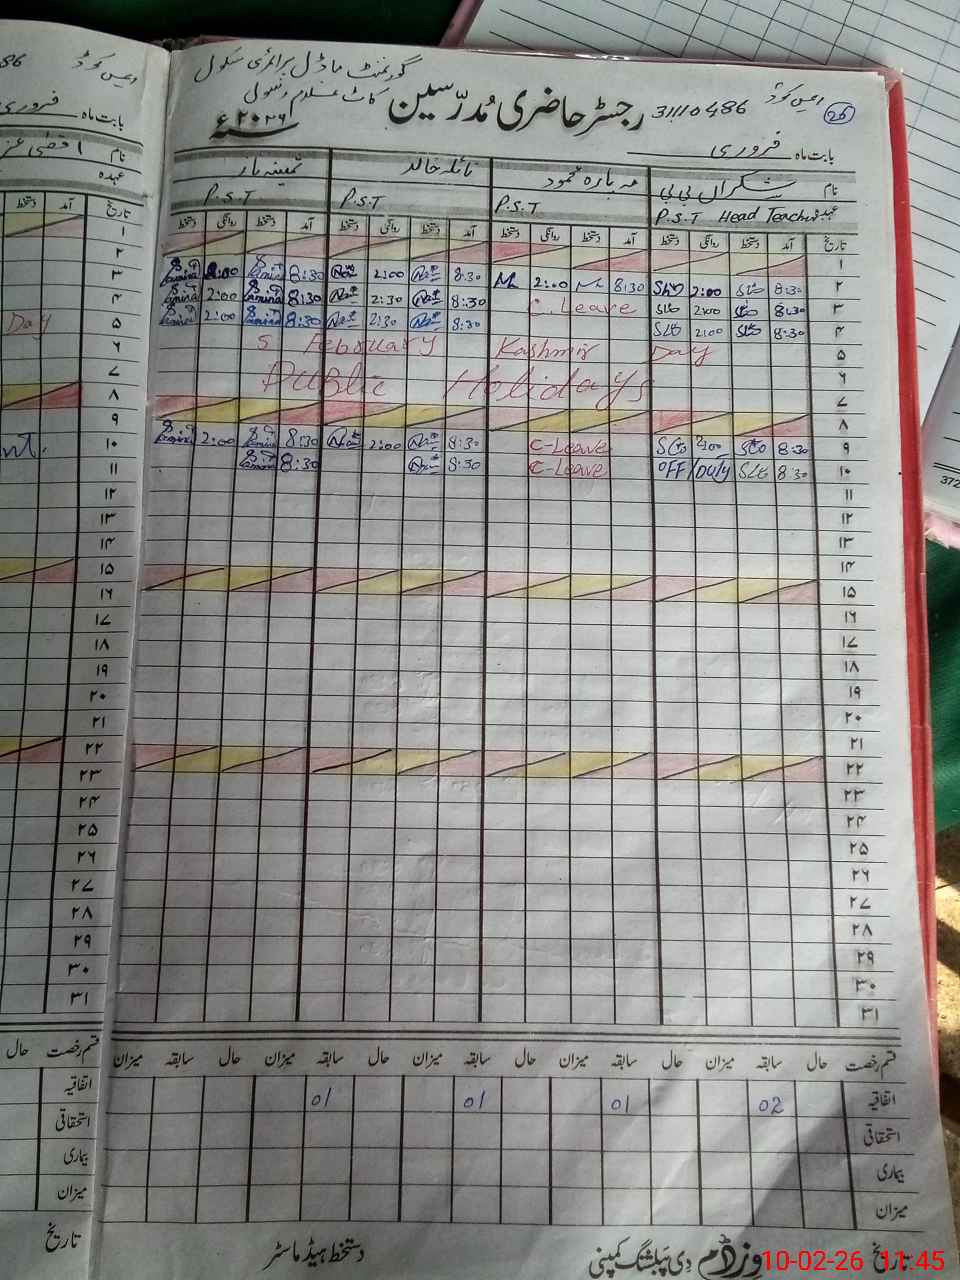 گورنمنٹ ماڈل پرائمری سکول
رجسٹر حاضری مُدرّسین 31110486 ایمس کوڈ 26
سنہ ۲۰۲۶ء
بابت ماہ فروری
نام شکراں بی بی نائلہ خالد ثمینہ ناز
عہدہ P.S.T Head Teacher P.S.T P.S.T P.S.T
تاریخ آمد دستخط روانگی دستخط آمد دستخط روانگی دستخط آمد دستخط روانگی دستخط آمد دستخط روانگی دستخط
۱
۲ 8:30 2:00 8:30 2:00 8:30 2:00 8:30 2:00
۳ 8:30 2:00 C.Leave 8:30 2:30 8:30 2:00
۴ 8:30 2:00 8:30 2:30 8:30 2:00
۵ 5 February Kashmir Day
۶ Public Holidays
۷
۸
۹ 8:30 2:00 C-Leave 8:30 2:00 8:30 2:00
۱۰ 8:30 OFF/Duty C-Leave 8:30 8:30
۱۱
۱۲
۱۳
۱۴
۱۵
۱۶
۱۷
۱۸
۱۹
۲۰
۲۱
۲۲
۲۳
۲۴
۲۵
۲۶
۲۷
۲۸
۲۹
۳۰
۳۱
قسم رخصت حال سابقہ میزان حال سابقہ میزان حال سابقہ میزان حال سابقہ میزان
اتفاقیہ 02 01 01 01
استحقاقی
بیماری
میزان
تاریخ وزڈم دی پبلشنگ کمپنی دستخط ہیڈ ماسٹر
10-02-26 11:45
86 ایمس کوڈ
بابت ماہ فروری
نام
عہدہ
تاریخ آمد دستخط
۱
۲
۳
۴
۵ Day
۶
۷
۸
۹
۱۰
۱۱
۱۲
۱۳
۱۴
۱۵
۱۶
۱۷
۱۸
۱۹
۲۰
۲۱
۲۲
۲۳
۲۴
۲۵
۲۶
۲۷
۲۸
۲۹
۳۰
۳۱
قسم رخصت حال
اتفاقیہ
استحقاقی
بیماری
میزان
تاریخ
372